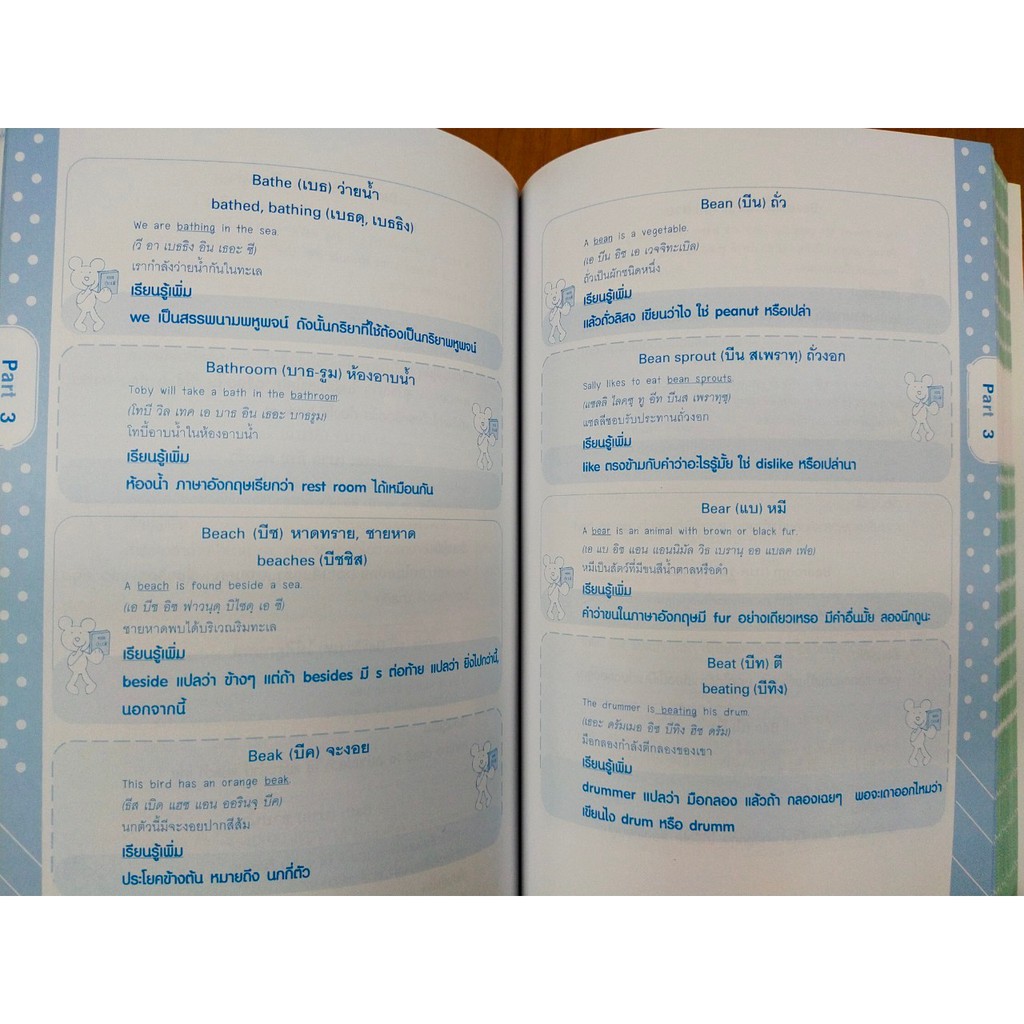 Bathe (เบธ) ว่ายน้ำ
bathed, bathing (เบธดฺ, เบธธิง)
We are bathing in the sea.
(วี อา เบธธิง อิน เธอะ ซี)
เรากำลังว่ายน้ำกันในทะเล
เรียนรู้เพิ่ม
we เป็นสรรพนามพหูพจน์ ดังนั้นกริยาที่ใช้ต้องเป็นกริยาพหูพจน์
Bathroom (บาธ-รูม) ห้องอาบน้ำ
Toby will take a bath in the bathroom.
(โทบี วิล เทค เอ บาธ อิน เธอะ บาธรูม)
โทบี้อาบน้ำในห้องอาบน้ำ
เรียนรู้เพิ่ม
ห้องน้ำ ภาษาอังกฤษเรียกว่า rest room ได้เหมือนกัน
Part 3
Beach (บีช) หาดทราย, ชายหาด
beaches (บีชชิส)
A beach is found beside a sea.
(เอ บีช อิซ ฟาวนฺดฺ บิไซดฺ เอ ซี)
ชายหาดพบได้บริเวณริมทะเล
เรียนรู้เพิ่ม
beside แปลว่า ข้างๆ แต่ถ้า besides มี s ต่อท้าย แปลว่า ยิ่งไปกว่านี้,
นอกจากนี้
Beak (บีค) จะงอย
This bird has an orange beak.
(ธีส เบิด แฮซ แอน ออรินจฺ บีค)
นกตัวนี้มีจะงอยปากสีส้ม
เรียนรู้เพิ่ม
ประโยคข้างต้น หมายถึง นกกี่ตัว
Bean (บีน) ถั่ว
A bean is a vegetable.
(เอ บีน อิซ เอ เวจจิทะเบิล)
ถั่วเป็นผักชนิดหนึ่ง
เรียนรู้เพิ่ม
แล้วถั่วลิสง เขียนว่าไง ใช่ peanut หรือเปล่า
Bean sprout (บีน สเพราทฺ) ถั่วงอก
Sally likes to eat bean sprouts.
(แซลลิ ไลคซฺ ทู อีท บีนส สเพราทฺซฺ)
แซลลี่ชอบรับประทานถั่วงอก
เรียนรู้เพิ่ม
like ตรงข้ามกับคำว่าอะไรรู้มั้ย ใช่ dislike หรือเปล่านา
Part 3
Bear (แบ) หมี
A bear is an animal with brown or black fur.
(เอ แบ อิซ แอน แอนนิมัล วิธ เบรานฺ ออ แบลค เฟอ)
หมีเป็นสัตว์ที่มีขนสีน้ำตาลหรือดำ
เรียนรู้เพิ่ม
คำว่าขนในภาษาอังกฤษมี fur อย่างเดียวเหรอ มีคำอื่นมั้ย ลองนึกดูนะ
Beat (บีท) ตี
beating (บีทิง)
The drummer is beating his drum.
(เธอะ ดรัมเมอ อิซ บีทิง ฮิซ ดรัม)
มือกลองกำลังตีกลองของเขา
เรียนรู้เพิ่ม
drummer แปลว่า มือกลอง แล้วถ้า กลองเฉยๆ พอจะเดาออกไหมว่า
เขียนไง drum หรือ drumm